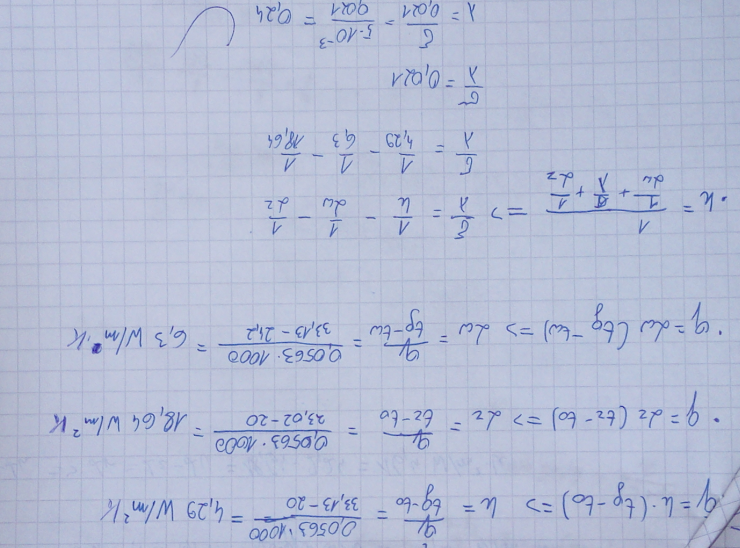 q = k·(tg-to) => k = q/(tg-to) = 0,0563·1000/(33,13-20) = 4,29 W/m²K
· q = αz (tz-to) => αz = q/(tz-to) = 0,0563·1000/(23,02-20) = 18,64 W/m²K
· q = αw (tg-tw) => αw = q/(tg-tw) = 0,0563·1000/(33,13-24,2) = 6,3 W/m·K
· k = 1/(1/αw + δ/λ + 1/αz) => δ/λ = 1/k - 1/αw - 1/αz
δ/λ = 1/4,29 - 1/6,3 - 1/18,64
δ/λ = 0,021
λ = δ/0,021 = 5·10⁻³/0,021 = 0,24